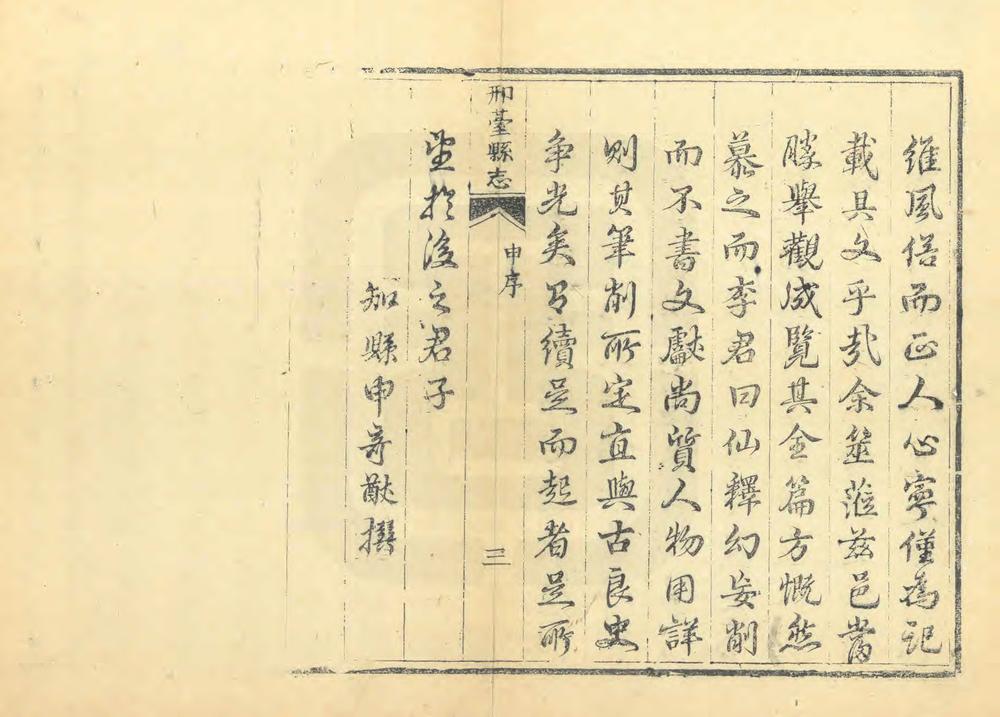 維風俗而正人心寧僅為記
載具文乎哉余筮蒞茲邑當
勝舉觀成覽其全篇方慨然
慕之而李君曰仙釋幻妄削
而不書文獻尚質人物用詳
則其筆削所定直與古良史
爭光矣續是而起者是所
邢臺縣志
申序
三
望於後之君子
知縣申奇猷撰